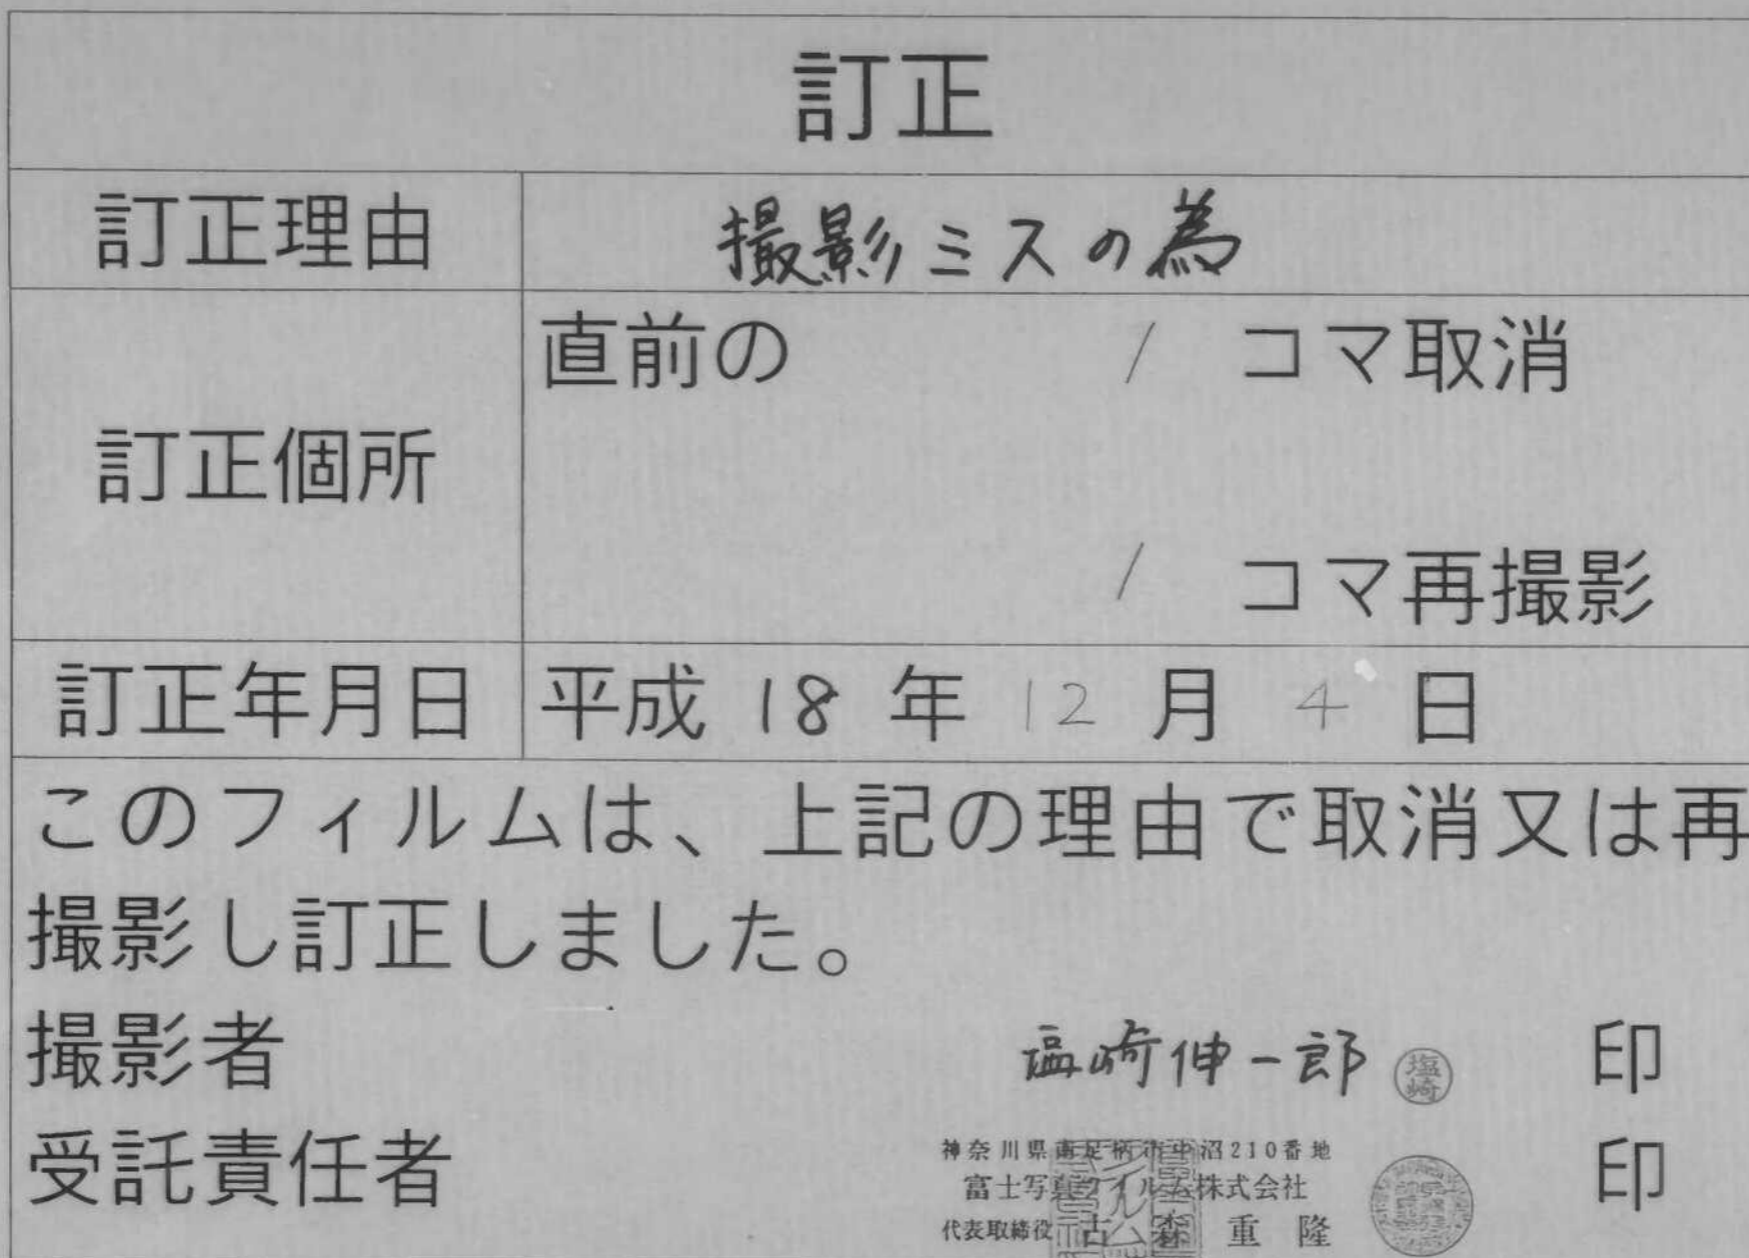 訂正
訂正理由 撮影ミスの為
訂正個所 直前の 1 コマ取消
1 コマ再撮影
訂正年月日 平成 18 年 12 月 4 日
このフィルムは、上記の理由で取消又は再
撮影し訂正しました。
撮影者 塩崎伸一郎 塩崎 印
受託責任者 印
神奈川県南足柄市中沼210番地
富士写真フイルム株式会社
代表取締役 古森重隆